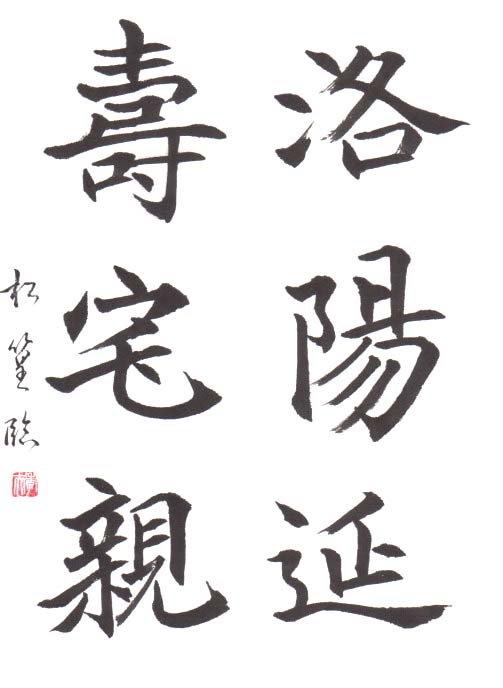 洛陽延
壽宅親
松篁臨